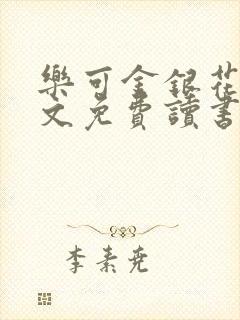 樂可金銀花
文免費讀書
李素堯